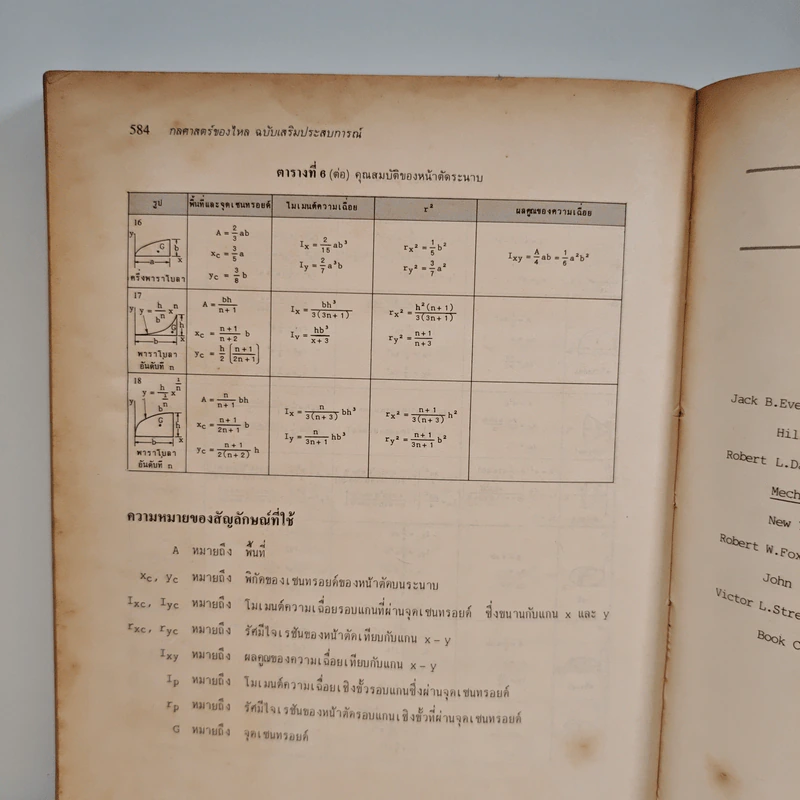 584 กลศาสตร์ของไหล ฉบับเสริมประสบการณ์
ตารางที่ 6 (ต่อ) คุณสมบัติของหน้าตัดระนาบ
รูป พื้นที่และจุดเซนทรอยด์ โมเมนต์ความเฉื่อย r² ผลคูณของความเฉื่อย
16
y G b a x
ครึ่งพาราโบลา
A = 2/3 ab
xc = 3/5 a
yc = 3/8 b
Ix = 2/15 ab³
Iy = 2/7 a³b
rx² = 1/5 b²
ry² = 3/7 a²
Ixy = A/4 ab = 1/6 a²b²
17
y y = h/bⁿ xⁿ
G h b x
พาราโบลา
อันดับที่ n
A = bh/n+1
xc = n+1/n+2 b
yc = h/2 [n+1/2n+1]
Ix = bh³/3(3n+1)
Iy = hb³/x+3
rx² = h²(n+1)/3(3n+1)
ry² = n+1/n+3
18
y = h/b^(1/n) x^(1/n)
y G h b x
พาราโบลา
อันดับที่ n
A = n/n+1 bh
xc = n+1/2n+1 b
yc = n+1/2(n+2) h
Ix = n/3(n+3) bh³
Iy = n/3n+1 hb³
rx² = n+1/3(n+3) h²
ry² = n+1/3n+1 b²
ความหมายของสัญลักษณ์ที่ใช้
A หมายถึง พื้นที่
xc, yc หมายถึง พิกัดของเซนทรอยด์ของหน้าตัดบนระนาบ
Ixc, Iyc หมายถึง โมเมนต์ความเฉื่อยรอบแกนที่ผ่านจุดเซนทรอยด์ ซึ่งขนานกับแกน x และ y
rxc, ryc หมายถึง รัศมีไจเรชันของหน้าตัดเทียบกับแกน x – y
Ixy หมายถึง ผลคูณของความเฉื่อยเทียบกับแกน x – y
Ip หมายถึง โมเมนต์ความเฉื่อยเชิงขั้วรอบแกนซึ่งผ่านจุดเซนทรอยด์
rp หมายถึง รัศมีไจเรชันของหน้าตัดรอบแกนเชิงขั้วที่ผ่านจุดเซนทรอยด์
G หมายถึง จุดเซนทรอยด์
Jack B.Eve
Hil
Robert L.Da
Mech
New
Robert W.Fox
John
Victor L.Stre
Book C